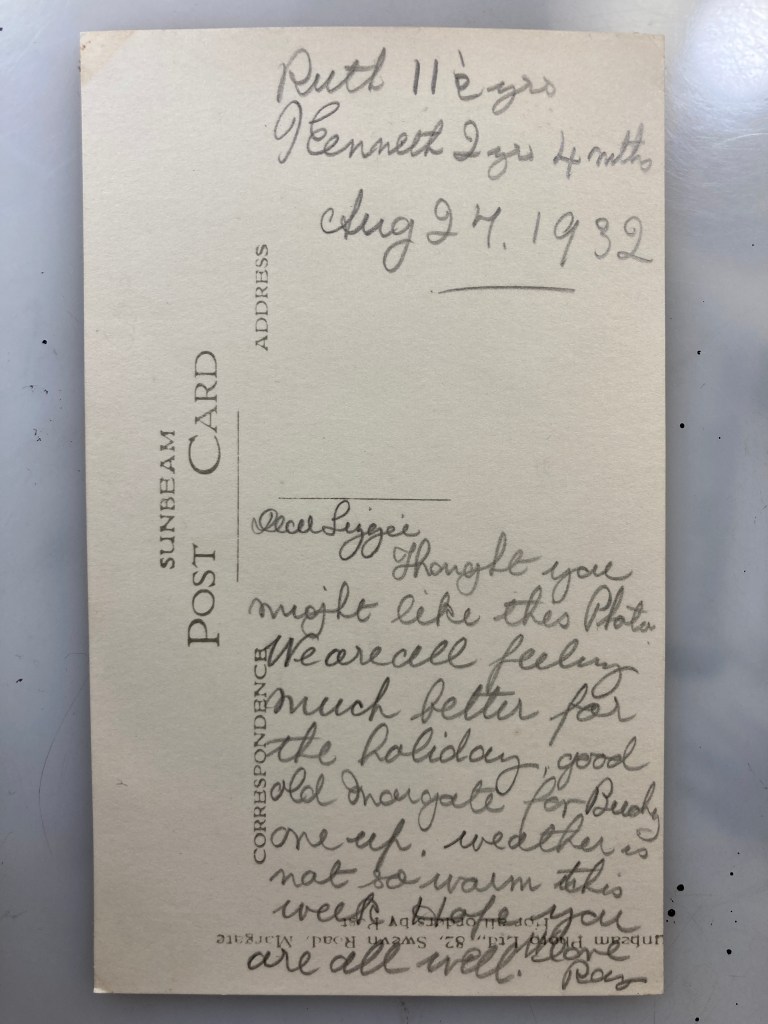 Ruth 11 yrs
Kenneth 2 yrs 4 mths
Aug 27. 1932
ADDRESS
SUNBEAM
POST CARD
CORRESPONDENCE
Dear Lizzie
Thought you
might like this Photo
We are all feeling
much better for
the holiday, good
old Margate for
one up. weather is
not so warm this
week Hope you
are all well. Love
Ray
For all orders by Post
unbeam Photo Ltd., 82, Sweyn Road, Margate